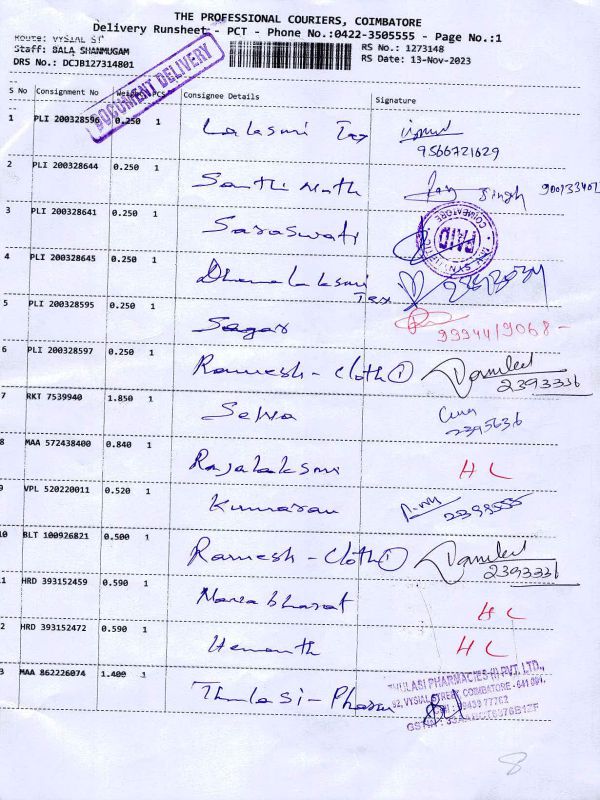 THE PROFESSIONAL COURIERS, COIMBATORE
Delivery Runsheet - PCT - Phone No.:0422-3505555 - Page No.:1
Route: VYSIAL ST
Staff: BALA SHANMUGAM
RS No.: 1273148
DRS No.: DCJB127314801
RS Date: 13-Nov-2023
DOCUMENT DELIVERY
S No Consignment No Weight PCS Consignee Details Signature
1 PLI 200328596 0.250 1 Lalaxmi Tex
9566721629
2 PLI 200328644 0.250 1 Santhi Nath Singh
3 PLI 200328641 0.250 1 Saraswati
COIMBATORE
PAID
4 PLI 200328645 0.250 1 Dhanalaksmi
Tex
5 PLI 200328595 0.250 1 Sagar
6 PLI 200328597 0.250 1 Ramesh - Cloth 1
2393336
7 RKT 7539940 1.850 1 Selva
2395636
8 MAA 572438400 0.840 1 Rajalaksmi H L
9 VPL 520220011 0.520 1 Kumaran
2398555
10 BLT 100926821 0.500 1 Ramesh - Cloth 1
2393336
1 HRD 393152459 0.590 1 Navabharat H L
2 HRD 393152472 0.590 1 Hemanth H L
3 MAA 862226074 1.400 1 Thulasi - Pharm
THULASI PHARMACIES (I) PVT. LTD.,
62, VYSIAL STREET, COIMBATORE - 641 001.
8